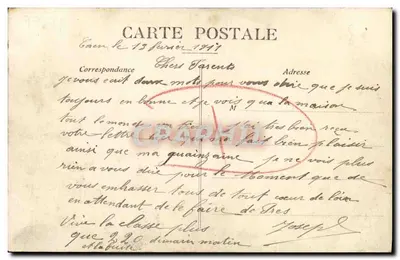 CARTE POSTALE
Caen le 13 février 1911
Correspondance
Adresse
Chers Parents
je vous ecrit deux mots pour vous dire que je suis
toujours en bonne et je vois qua la maison
M
tout le monde en bien reçu
votre lettre bien plaisir
ainsi que ma quinzaine je ne vois plus
rien a vous dire pour le moment que de
vous embrasser tous de tout cœur de loin
en attendant de le faire de Pres
Vive la classe plus Joseph
que 220 demain matin
et la fuite